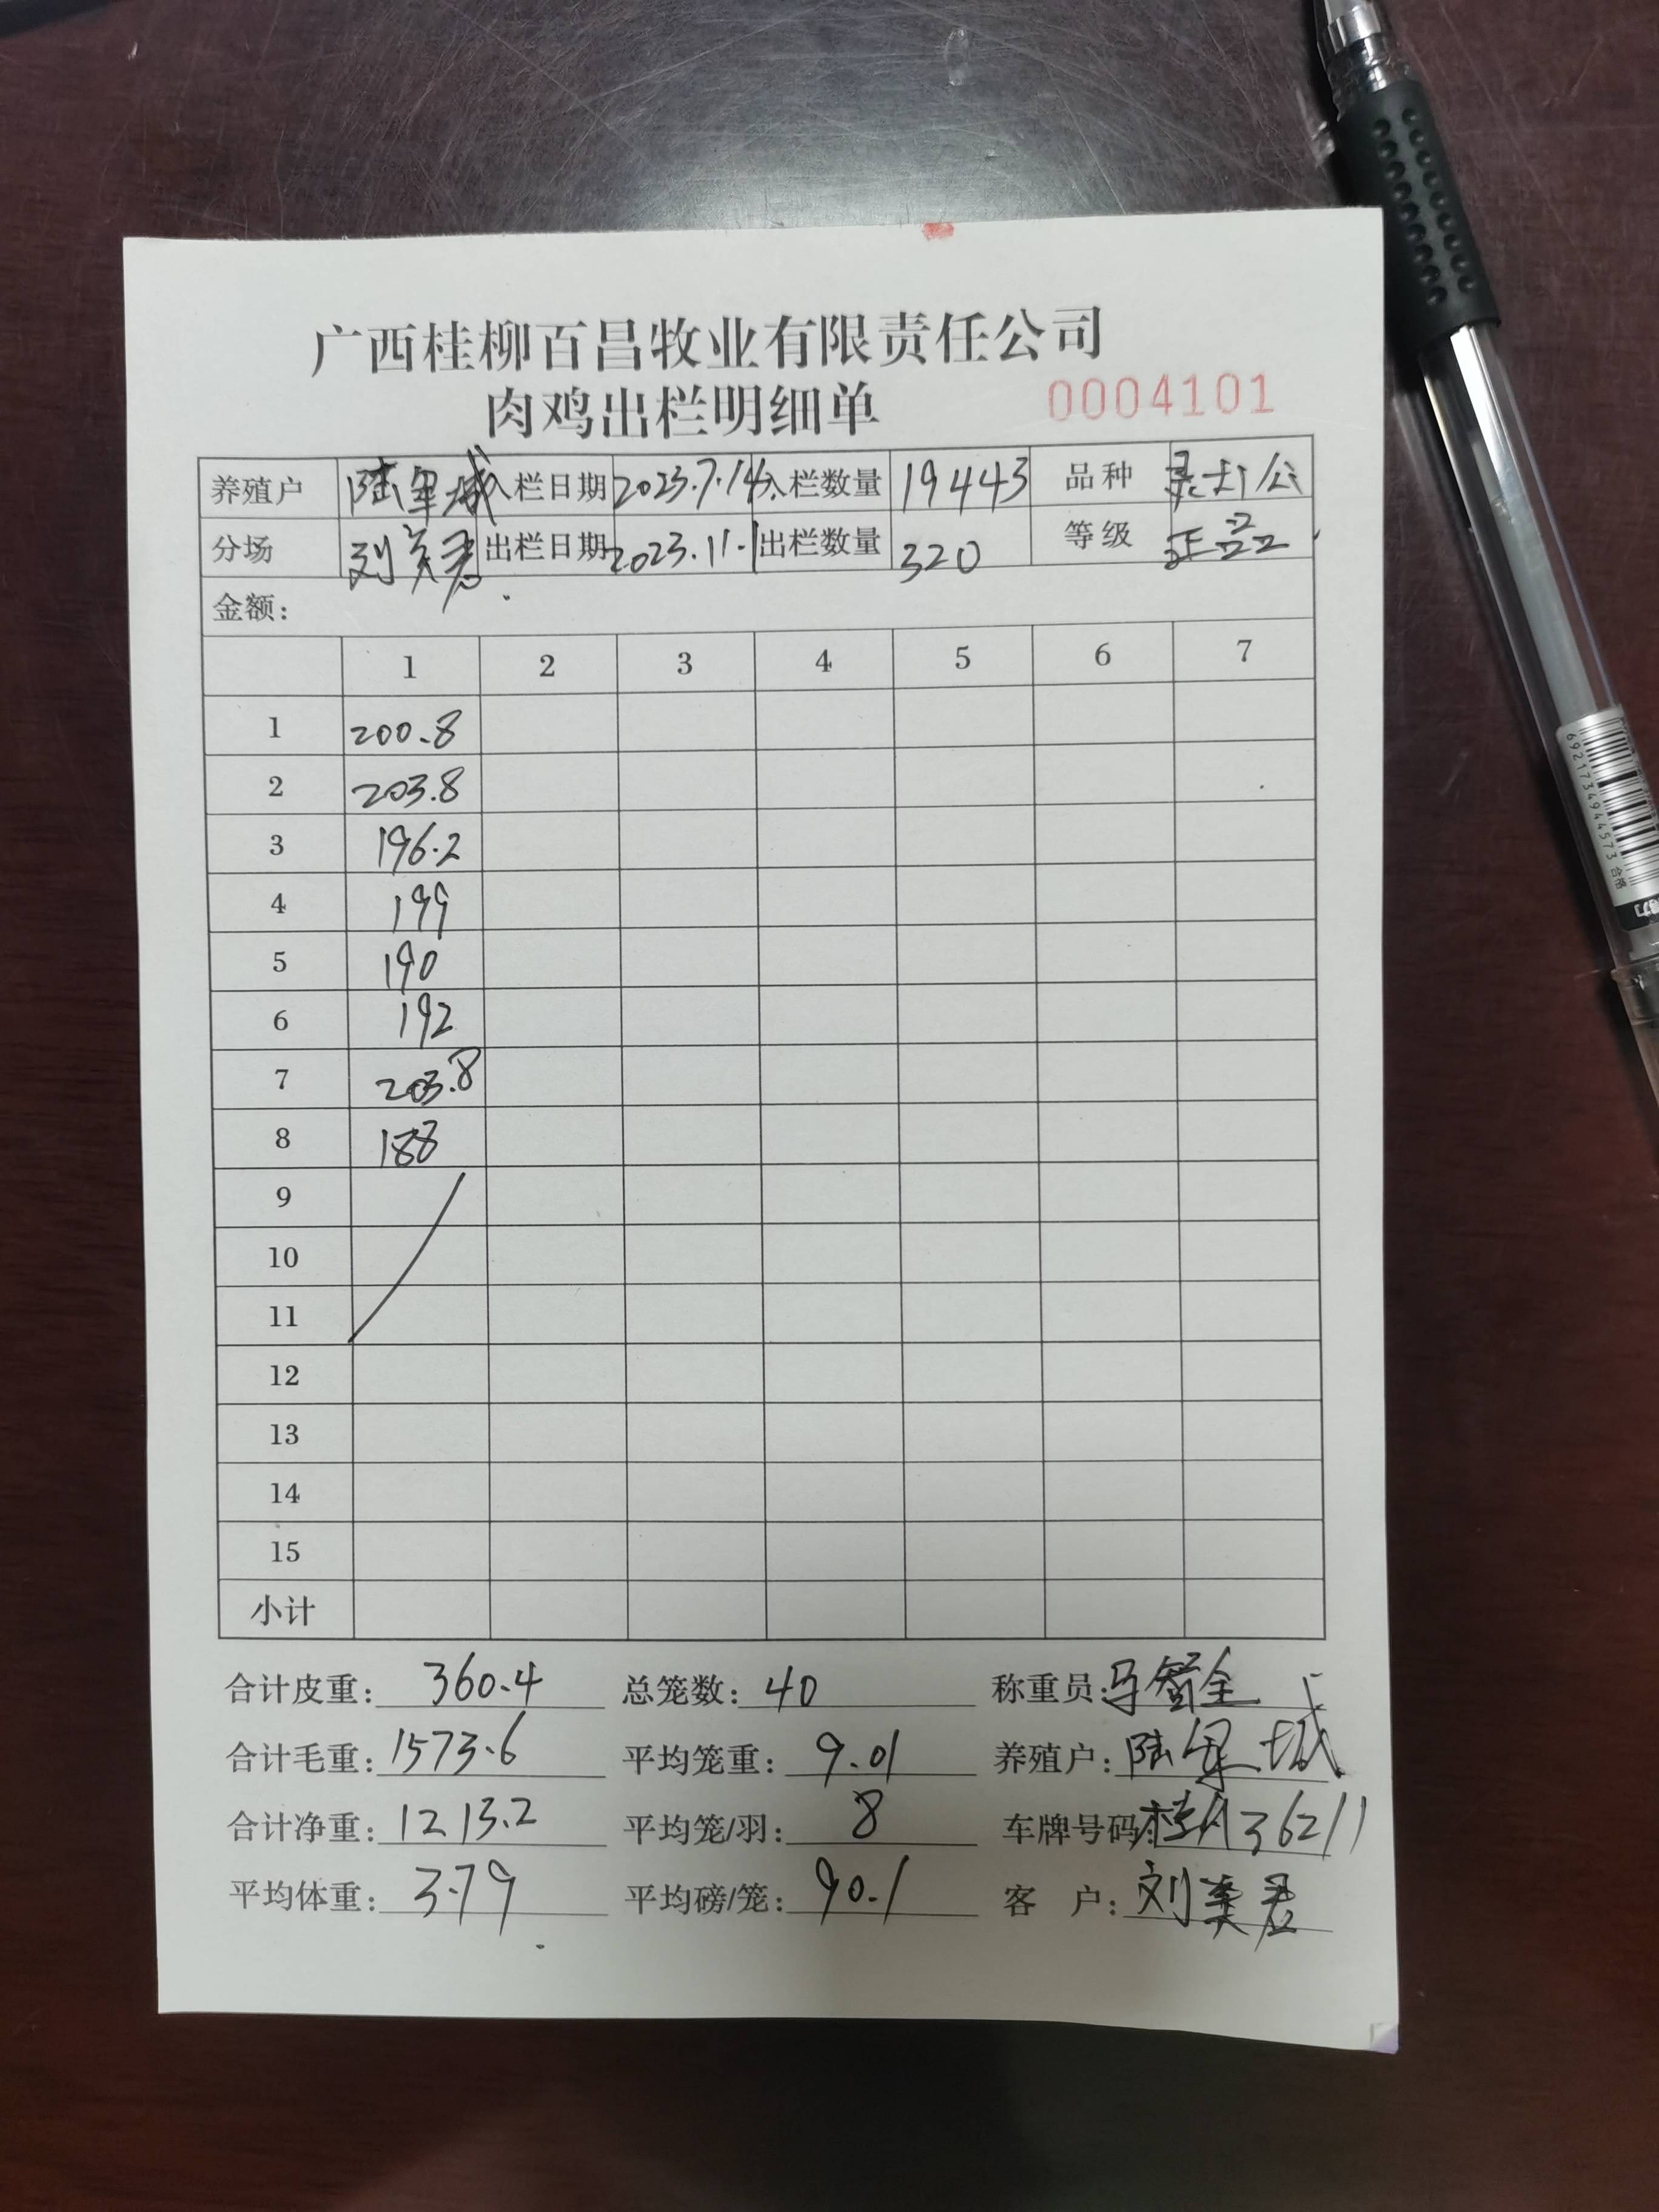 广西桂柳百昌牧业有限责任公司
肉鸡出栏明细单 0004101
养殖户 陆军城 入栏日期 2023.7.14 入栏数量 19443 品种
分场 刘美君 出栏日期 2023.11.1 出栏数量 320 等级 正品
金额:
1 2 3 4 5 6 7
1 200.8
2 203.8
3 196.2
4 199
5 190
6 192
7 203.8
8 188
9
10
11
12
13
14
15
小计
合计皮重: 360.4 总笼数: 40 称重员: 马 全
合计毛重: 1573.6 平均笼重: 9.01 养殖户: 陆 城
合计净重: 1213.2 平均笼/羽: 8 车牌号码: 桂A36211
平均体重: 3.79 平均磅/笼: 90.1 客 户: 刘美君
6921734944573 合格